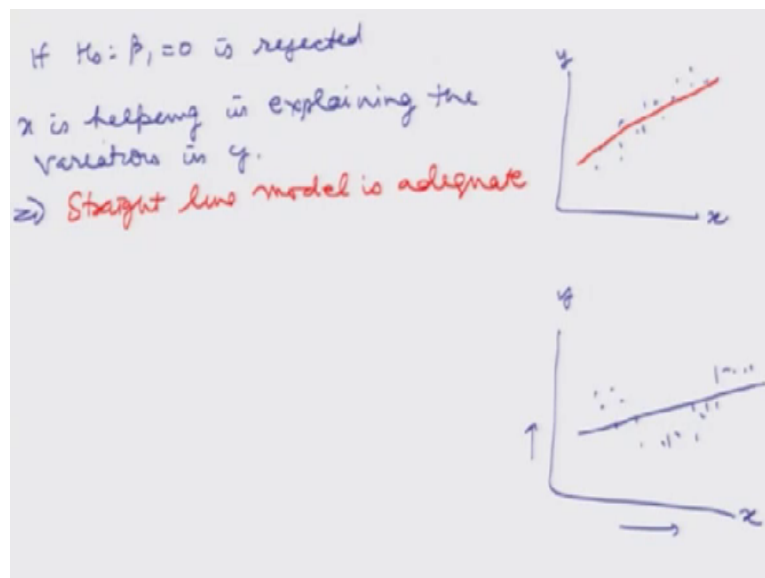 If H₀: β₁ = 0 is rejected
x is helping in explaining the
variation in y.
⇒ Straight line model is adequate
y
x
y
x